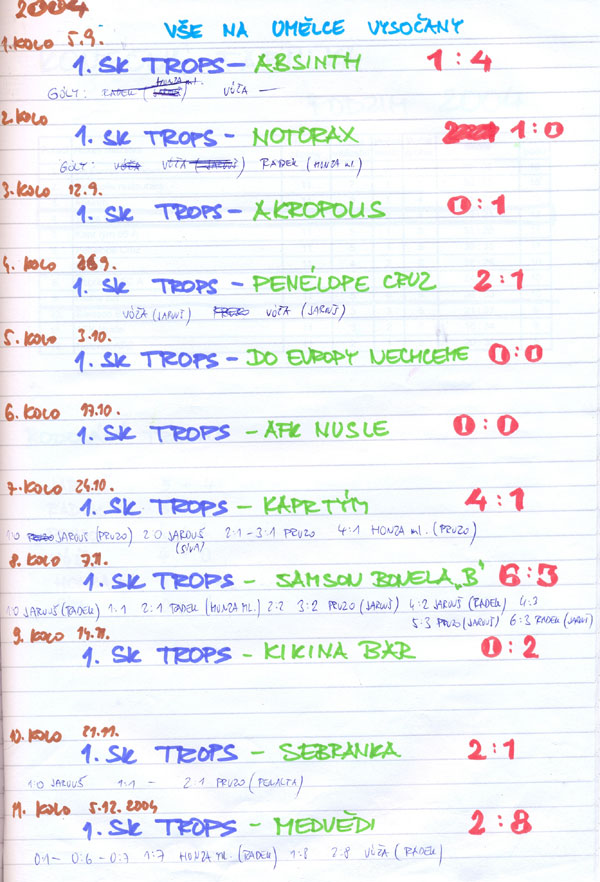 2004
VŠE NA UMĚLCE VYSOČANY
1. KOLO 5.9.
1. SK TROPS – ABSINTH 1:4
GÓLY: RADEK (HONZA ml.) VÓŽA —
2. KOLO
1. SK TROPS – NOTORAX 1:0
GÓLY: RADEK (HONZA ml.)
3. KOLO 12.9.
1. SK TROPS – AKROPOLIS 0:1
4. KOLO
1. SK TROPS – PENÉLOPE CRUZ 2:1
VÓŽA (JARUŠ) VÓŽA (JARUŠ)
5. KOLO 3.10.
1. SK TROPS – DO EVROPY NECHCEME 0:0
6. KOLO 17.10.
1. SK TROPS – AFK NUSLE 0:0
7. KOLO 24.10.
1. SK TROPS – KAPRTÝM 4:1
1:0 JARUŠ (PRUZO) 2:0 JARUŠ 2:1 – 3:1 PRUZO 4:1 HONZA ml. (PRUZO)
(SÍVA)
8. KOLO 7.11.
1. SK TROPS – SAMSON BONELA „B" 6:3
1:0 JARUŠ (RADEK) 1:1 2:1 RADEK (HONZA ML.) 2:2 3:2 PRUZO (JARUŠ) 4:2 JARUŠ (RADEK) 4:3
5:3 PRUZO (JARUŠ) 6:3 RADEK (JARUŠ)
9. KOLO 14.11.
1. SK TROPS – KIKINA BAR 0:2
10. KOLO 21.11.
1. SK TROPS – SEBRANKA 2:1
1:0 JARUŠ 1:1 – 2:1 PRUZO (PENALTA)
11. KOLO 5.12.2004
1. SK TROPS – MEDVĚDI 2:8
0:1 – 0:6 – 0:7 1:7 HONZA ml. (RADEK) 1:8 2:8 VÓŽA (RADEK)